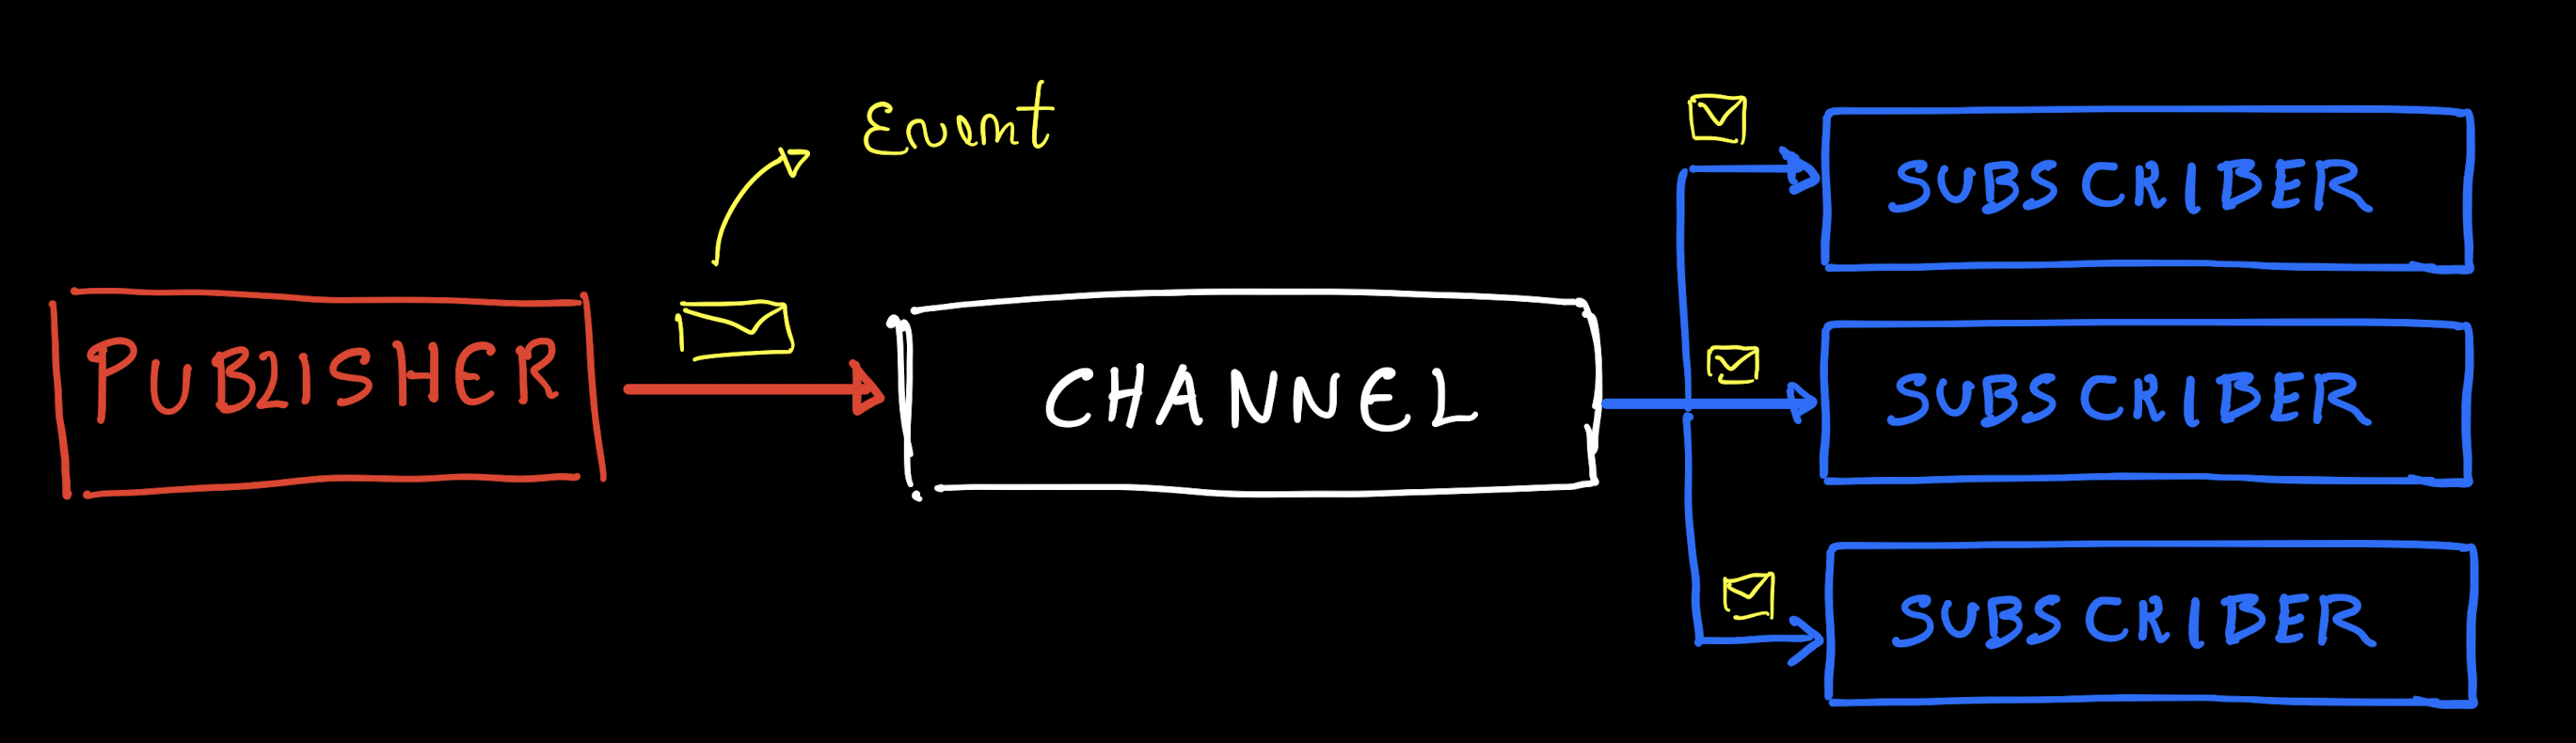 Event
PUBLISHER
CHANNEL
SUBSCRIBER
SUBSCRIBER
SUBSCRIBER